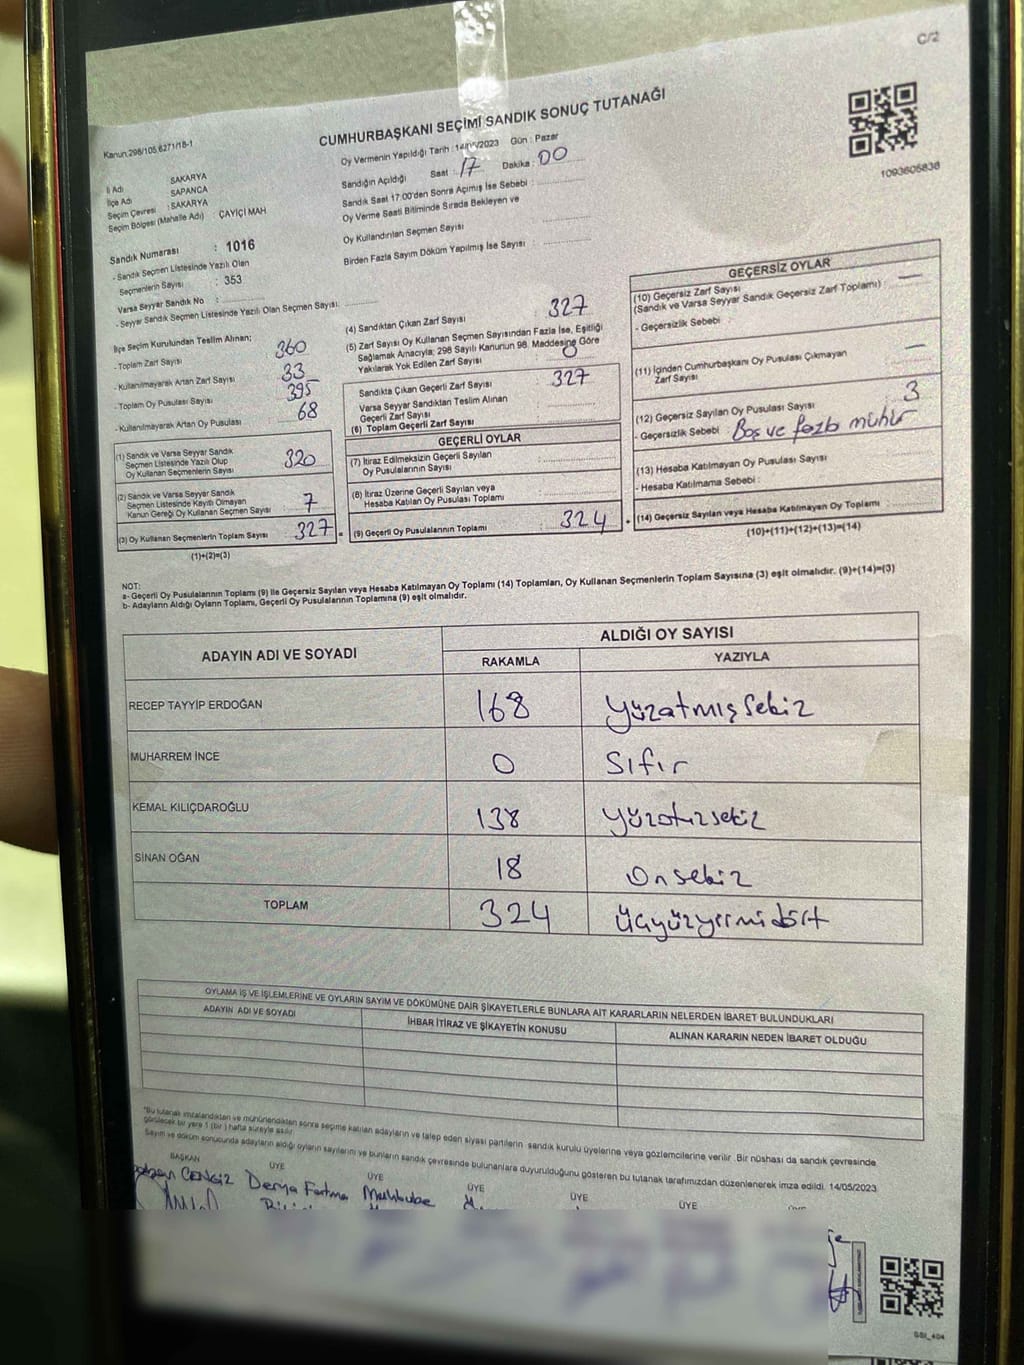 C/2
CUMHURBAŞKANI SEÇİMİ SANDIK SONUÇ TUTANAĞI
Kanun 298/105,6271/18-1
1093605836
Oy Vermenin Yapıldığı Tarih : 14/05/2023 Gün : Pazar
Sandığın Açıldığı Saat : 17 Dakika : 00
Sandık Saat 17:00'den Sonra Açımış İse Sebebi :
Oy Verme Saati Bitiminde Sırada Bekleyen ve
Oy Kullandırılan Seçmen Sayısı
Birden Fazla Sayım Döküm Yapılmış İse Sayısı :
İl Adı SAKARYA
İlçe Adı SAPANCA
Seçim Çevresi : SAKARYA
Seçim Bölgesi (Mahalle Adı) ÇAYİÇİ MAH
Sandık Numarası : 1016
- Sandık Seçmen Listesinde Yazılı Olan
Seçmenlerin Sayısı : 353
Varsa Seyyar Sandık No :
- Seyyar Sandık Seçmen Listesinde Yazılı Olan Seçmen Sayısı:
İlçe Seçim Kurulundan Teslim Alınan;
- Toplam Zarf Sayısı 360
- Kullanılmayarak Artan Zarf Sayısı 33
- Toplam Oy Pusulası Sayısı 395
- Kullanılmayarak Artan Oy Pusulası 68
(1) Sandık ve Varsa Seyyar Sandık
Seçmen Listesinde Yazılı Olup
Oy Kullanan Seçmenlerin Sayısı 320
(2) Sandık ve Varsa Seyyar Sandık
Seçmen Listesinde Kayıtlı Olmayan
Kanun Gereği Oy Kullanan Seçmen Sayısı : 7
(3) Oy Kullanan Seçmenlerin Toplam Sayısı 327
(1)+(2)=(3)
(4) Sandıktan Çıkan Zarf Sayısı 327
(5) Zarf Sayısı Oy Kullanan Seçmen Sayısından Fazla İse, Eşitliği
Sağlamak Amacıyla; 298 Sayılı Kanunun 98. Maddesine Göre
Yakılarak Yok Edilen Zarf Sayısı : 0
Sandıkta Çıkan Geçerli Zarf Sayısı : 327
Varsa Seyyar Sandıktan Teslim Alınan
Geçerli Zarf Sayısı
(6) Toplam Geçerli Zarf Sayısı
GEÇERLİ OYLAR
(7) İtiraz Edilmeksizin Geçerli Sayılan
Oy Pusulalarının Sayısı
(8) İtiraz Üzerine Geçerli Sayılan veya
Hesaba Katılan Oy Pusulası Toplamı
(9) Geçerli Oy Pusulalarının Toplamı : 324
GEÇERSİZ OYLAR
(10) Geçersiz Zarf Sayısı —
(Sandık ve Varsa Seyyar Sandık Geçersiz Zarf Toplamı) :
- Geçersizlik Sebebi :
(11) İçinden Cumhurbaşkanı Oy Pusulası Çıkmayan —
Zarf Sayısı
(12) Geçersiz Sayılan Oy Pusulası Sayısı 3
- Geçersizlik Sebebi Boş ve fazla mühür
(13) Hesaba Katılmayan Oy Pusulası Sayısı
- Hesaba Katılmama Sebebi :
(14) Geçersiz Sayılan veya Hesaba Katılmayan Oy Toplamı
(10)+(11)+(12)+(13)=(14)
NOT:
a- Geçerli Oy Pusulalarının Toplamı (9) ile Geçersiz Sayılan veya Hesaba Katılmayan Oy Toplamı (14) Toplamları, Oy Kullanan Seçmenlerin Toplam Sayısına (3) eşit olmalıdır. (9)+(14)=(3)
b- Adayların Aldığı Oyların Toplamı, Geçerli Oy Pusulalarının Toplamına (9) eşit olmalıdır.
ADAYIN ADI VE SOYADI
ALDIĞI OY SAYISI
RAKAMLA YAZIYLA
RECEP TAYYİP ERDOĞAN 168 Yüzatmışsekiz
MUHARREM İNCE 0 Sıfır
KEMAL KILIÇDAROĞLU 138 Yüzotuzsekiz
SİNAN OĞAN 18 Onsekiz
TOPLAM 324 Üçyüzyirmidört
OYLAMA İŞ VE İŞLEMLERİNE VE OYLARIN SAYIM VE DÖKÜMÜNE DAİR ŞİKAYETLERLE BUNLARA AİT KARARLARIN NELERDEN İBARET BULUNDUKLARI
ADAYIN ADI VE SOYADI
İHBAR İTİRAZ VE ŞİKAYETİN KONUSU
ALINAN KARARIN NEDEN İBARET OLDUĞU
*Bu tutanak imzalandıktan ve mühürlendikten sonra seçime katılan adayların ve talep eden siyasi partilerin sandık kurulu üyelerine veya gözlemcilerine verilir. Bir nüshası da sandık çevresinde
görülecek bir yere 1 (bir) hafta süreyle asılır.
Sayım ve döküm sonucunda adayların aldığı oyların sayılarını ve bunların sandık çevresinde bulunanlara duyurulduğunu gösteren bu tutanak tarafımızdan düzenlenerek imza edildi. 14/05/2023
BAŞKAN ÜYE ÜYE ÜYE ÜYE ÜYE
CENGİZ Derya Fatma Mahbube
GSI_404